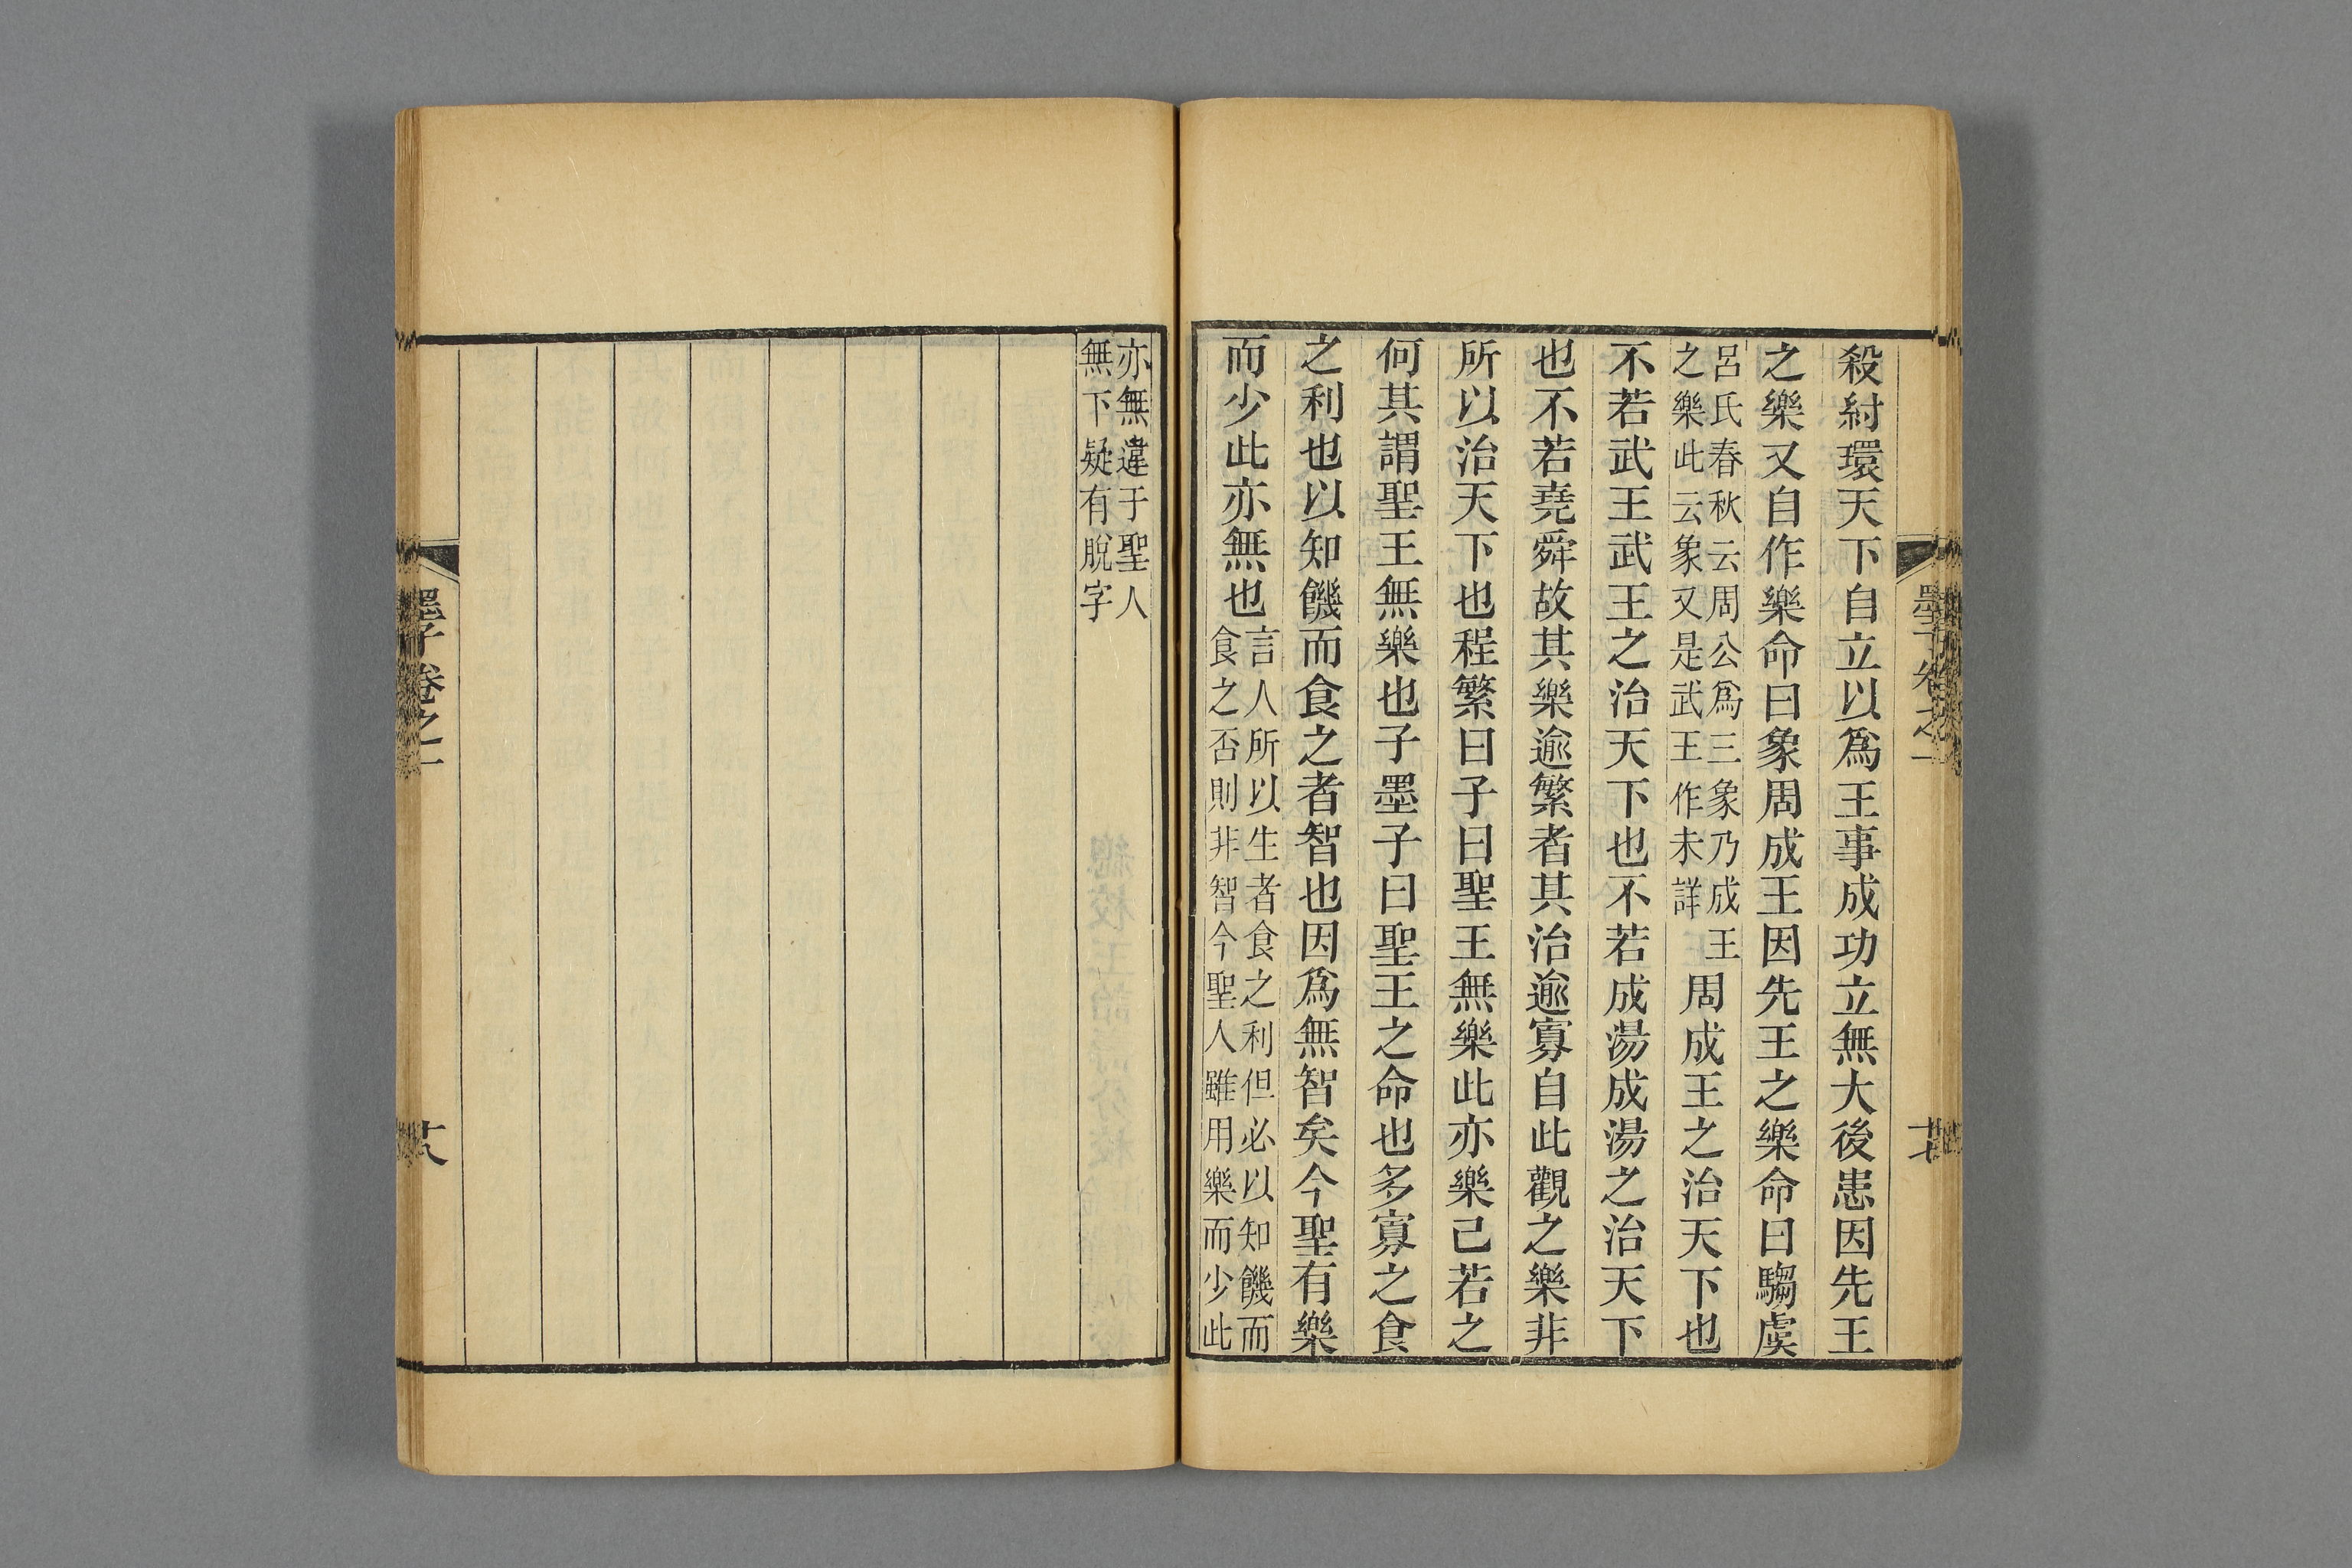 殺紂環天下自立以爲王事成功立無大後患因先王
之樂又自作樂命曰象周成王因先王之樂命曰騶虞
呂氏春秋云周公爲三象乃成王
之樂此云象又是武王作未詳
周成王之治天下也
不若武王武王之治天下也不若成湯成湯之治天下
也不若堯舜故其樂逾繁者其治逾寡自此觀之樂非
所以治天下也程繁曰子曰聖王無樂此亦樂己若之
何其謂聖王無樂也子墨子曰聖王之命也多寡之食
之利也以知饑而食之者智也因爲無智矣今聖有樂
而少此亦無也
言人所以生者食之利但必以知饑而
食之否則非智今聖人雖用樂而少此
亦無違于聖人
無下疑有脫字
墨子卷之一
十七
墨子卷之一
十八